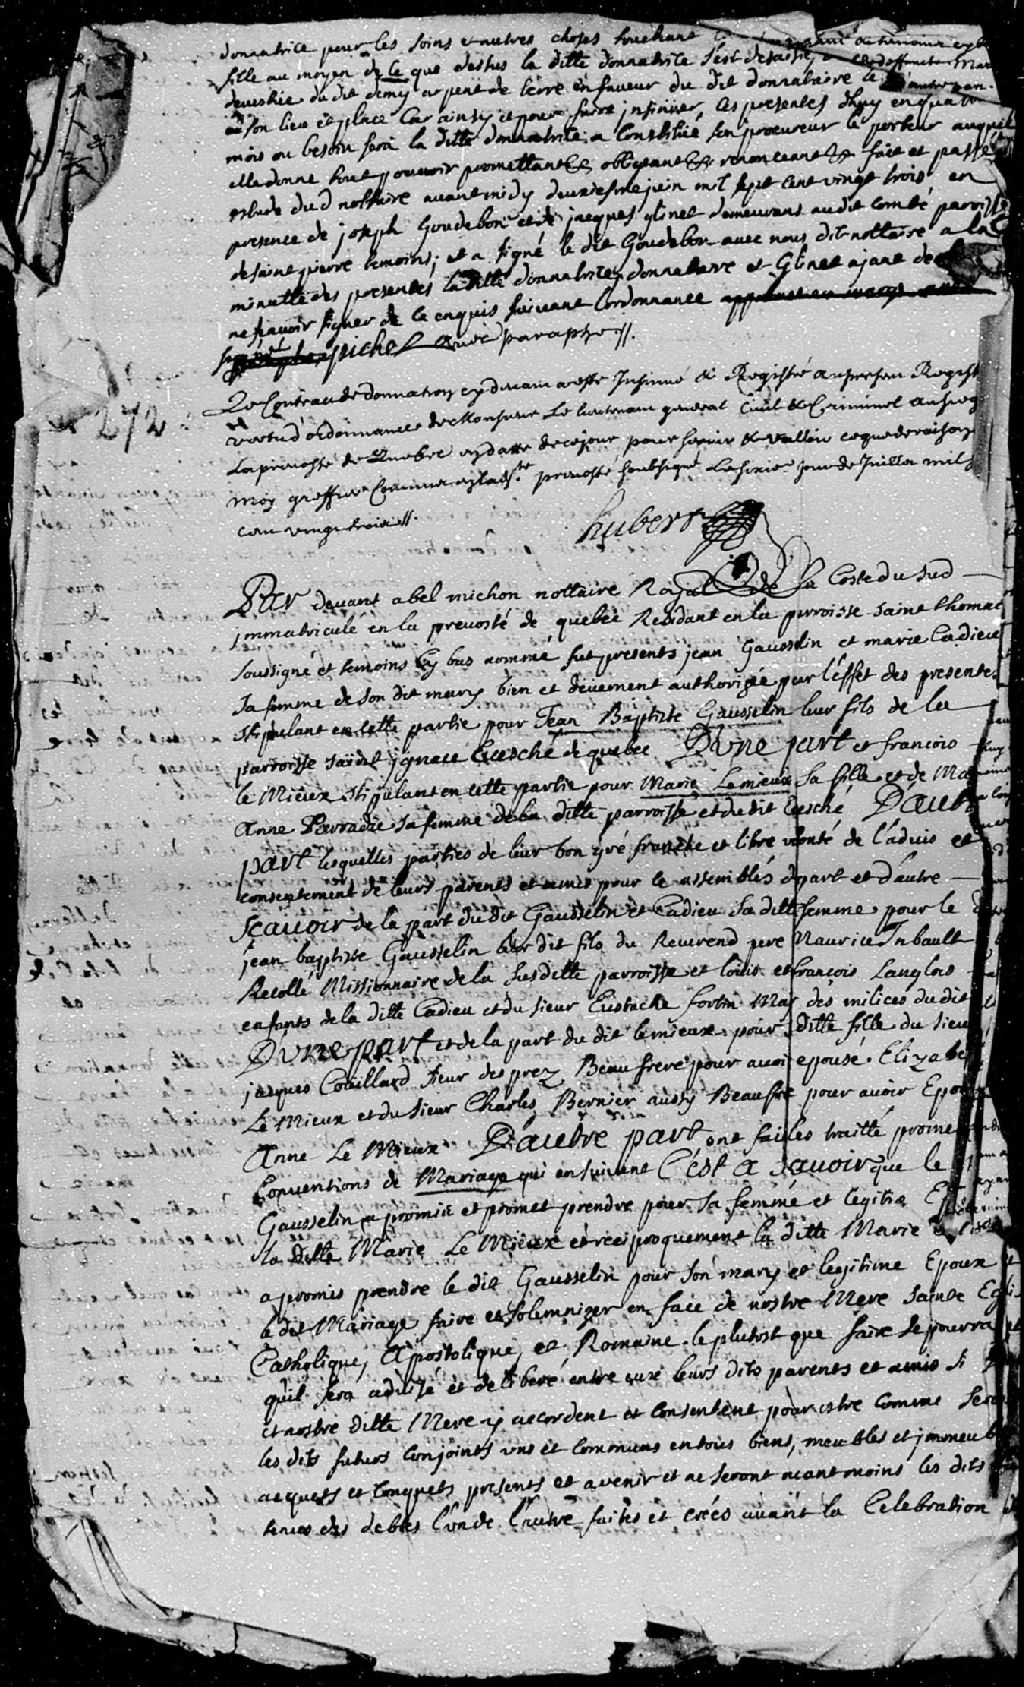 donnatrice pour les soins et autres choses touchant
fille au moyen de ce que dessus la ditte donnatrice s'est desaisie
devestüe du dit demy arpent de terre en faveur du dit donnataire le
en son lieu et place Car ainsy et pour faire insinuer les presentes d'huy en quatre
mois ou besoin sera la ditte donnatrice a Constitué son procureur le porteur auquel
elle donne tout pouvoir promettant &c obligeant &c renonceant &c fait et passé
estude dud nottaire avant midy deuxiesme juin mil sept cent vingt trois en
presence de joseph Goudebon et de jacques glinet demeurans audit Comté parroisse
de saint pierre temoins; et a signé le dit Goudebon avec nous dit nottaire a la
minutte des presentes la ditte donnatrice, donnataire et Glinet ayant de
ne sçavoir signer de ce enquis suivant l'ordonnance
pichet avec paraphe //.
272
Le Contrau de donnation cy devant a esté Insinué & Registré au presen Regist
vertu d'ordonnance de Monsieur Le lieutenant general Civil & Criminel au sieg
La prevosté de Quebec en datte de ce jour pour servir & valloir ce que de raison
moy greffier Commis en lad.te prevosté soubsigné Le jour de Juillet mil
cent vingt trois //.
hubert
Par devant abel michon nottaire Royal de la Coste du Sud
jmmatriculé en la prevosté de quebec Residant en la parroisse saint thomas
soussigné et temoins cy bas nommé fut presents jean Gausselin et marie Cadieu
sa femme de son dit mary bien et deuement authorizée pour l'effet des presente
stipulant en cette partie pour Jean Baptiste Gausselin leur fils de la
parroisse saint jgnace Evesché de quebec D'une part et francois
le Mieux stipulant en cette partie pour Marie Lemieux sa fille et de Ma
Anne Parradie sa femme de la ditte parroisse et du dit Evesché D'autre
part lesquelles parties de leur bon gré franche et libre vollonté de l'advis et
consentement de leurs parents et amis pour ce assemblés dpart et d'autre
Scavoir de la part du dit Gausselin et Cadieu sa ditte femme pour le
jean baptiste Gausselin leur dit fils du Reverend pere Maurice Jnbault
Recollé Missionnaire de la susditte parroisse et louis et francois Langlois
enfants de la ditte Cadieu et du sieur Eustache fortin Maj des milices du dit
D'une part et de la part du dit lemieux pour ditte fille du sieur
jacques Coüillard sieur des prez Beau frere pour avoir epousé Elizabe
Le Mieux et du sieur Charles Bernier aussy Beaufre pour avoir Epou
Anne Le Mieux D'autre part ont fait les traitté prome
Conventions de Mariage qui ensuivent C'est a sauoir que le
Gausselin a promis et promet prendre pour sa femme et legitie E
la ditte Marie Le Mieux et reciproquement la ditte Marie
a promis prendre le dit Gausselin pour son mary et legitime Epoux
le dit Mariage faire et solemnizer en face de nostre Mere Sainte Egli
Catholique, Apostolique, et Romaine le plutost que faire se pourra
quil sera advisé et deliberé entre eux leurs dits parents et amis si
et nostre ditte Mere y accordent et Consentent pour estre comme sero
les dits futurs conjoints uns et communs en tous biens, meubles et jmmeub
acquets et Conquets presents et avenir et ne seront neantmoins les dits
tenus des debtes l'un de l'autre faites et crées avant la Celebration